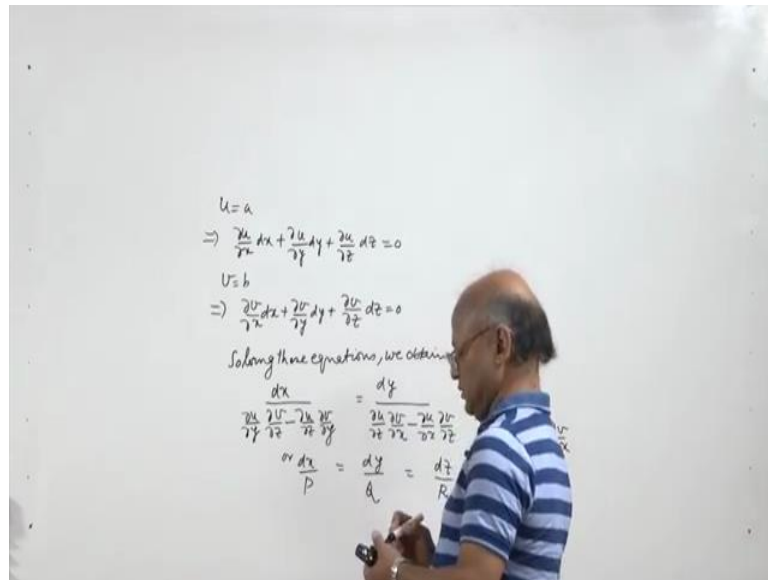 u=a
⇒) ∂u/∂x dx + ∂u/∂y dy + ∂u/∂z dz = 0
v=b
⇒) ∂v/∂x dx + ∂v/∂y dy + ∂v/∂z dz = 0
Solving these equations, we obtain
dx / (∂u/∂y ∂v/∂z − ∂u/∂z ∂v/∂y) = dy / (∂u/∂z ∂v/∂x − ∂u/∂x ∂v/∂z)
or dx/P = dy/Q = dz/R